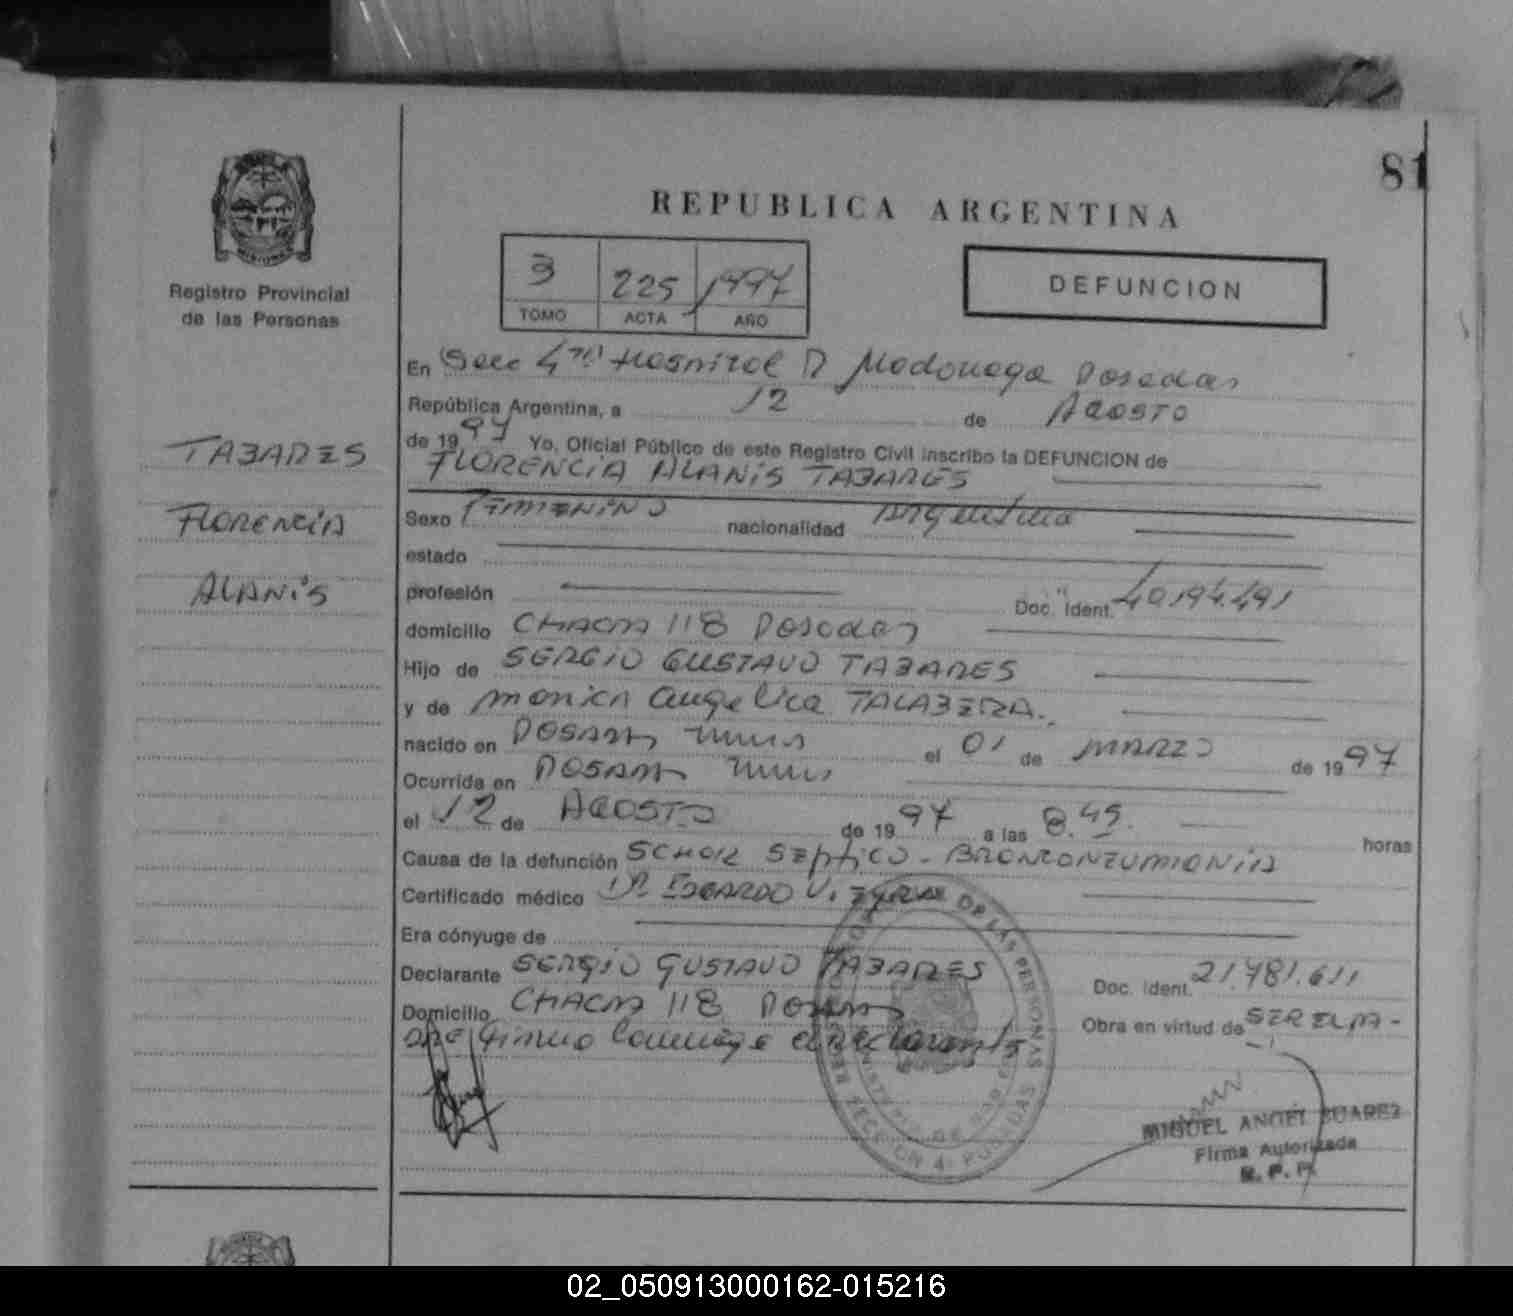 81
REPUBLICA ARGENTINA
Registro Provincial
de las Personas
3 225 1997
TOMO ACTA AÑO
DEFUNCION
TABARES
FLORENCIA
ALANIS
En Secc 4ta Hospital R Madariaga Posadas
República Argentina, a 12 de AGOSTO
de 1997 Yo, Oficial Público de este Registro Civil inscribo la DEFUNCION de
FLORENCIA ALANIS TABARES
Sexo FEMENINO nacionalidad Argentina
estado
profesión Doc. Ident. 40.194.491
domicilio CHACRA 118 Posadas
Hijo de SERGIO GUSTAVO TABARES
y de MONICA Angelica TALABERA.
nacido en POSADAS el 01 de MARZO de 1997
Ocurrida en POSADAS
el 12 de AGOSTO de 1997 a las 8.45 horas
Causa de la defunción SCHOK SEPTICO - BRONCONEUMONIA
Certificado médico Dr EDGARDO
Era cónyuge de
Declarante SERGIO GUSTAVO TABARES Doc. Ident. 21.781.611
Domicilio CHACRA 118 POSADAS Obra en virtud de SER EL PA-
DRE firma conmigo el declarante
REGISTRO PROVINCIAL DE LAS PERSONAS
SECCION 4 POSADAS
MIGUEL ANGEL SUAREZ
Firma Autorizada
R. P. P.
02_050913000162-015216